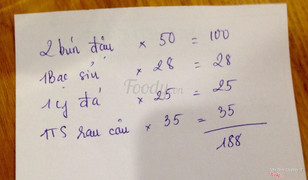 2 bún đậu × 50 = 100
1 Bạc sỉu × 28 = 28
1 ly đá × 25 = 25
1 TS rau câu × 35 = 35
188
Foody.vn